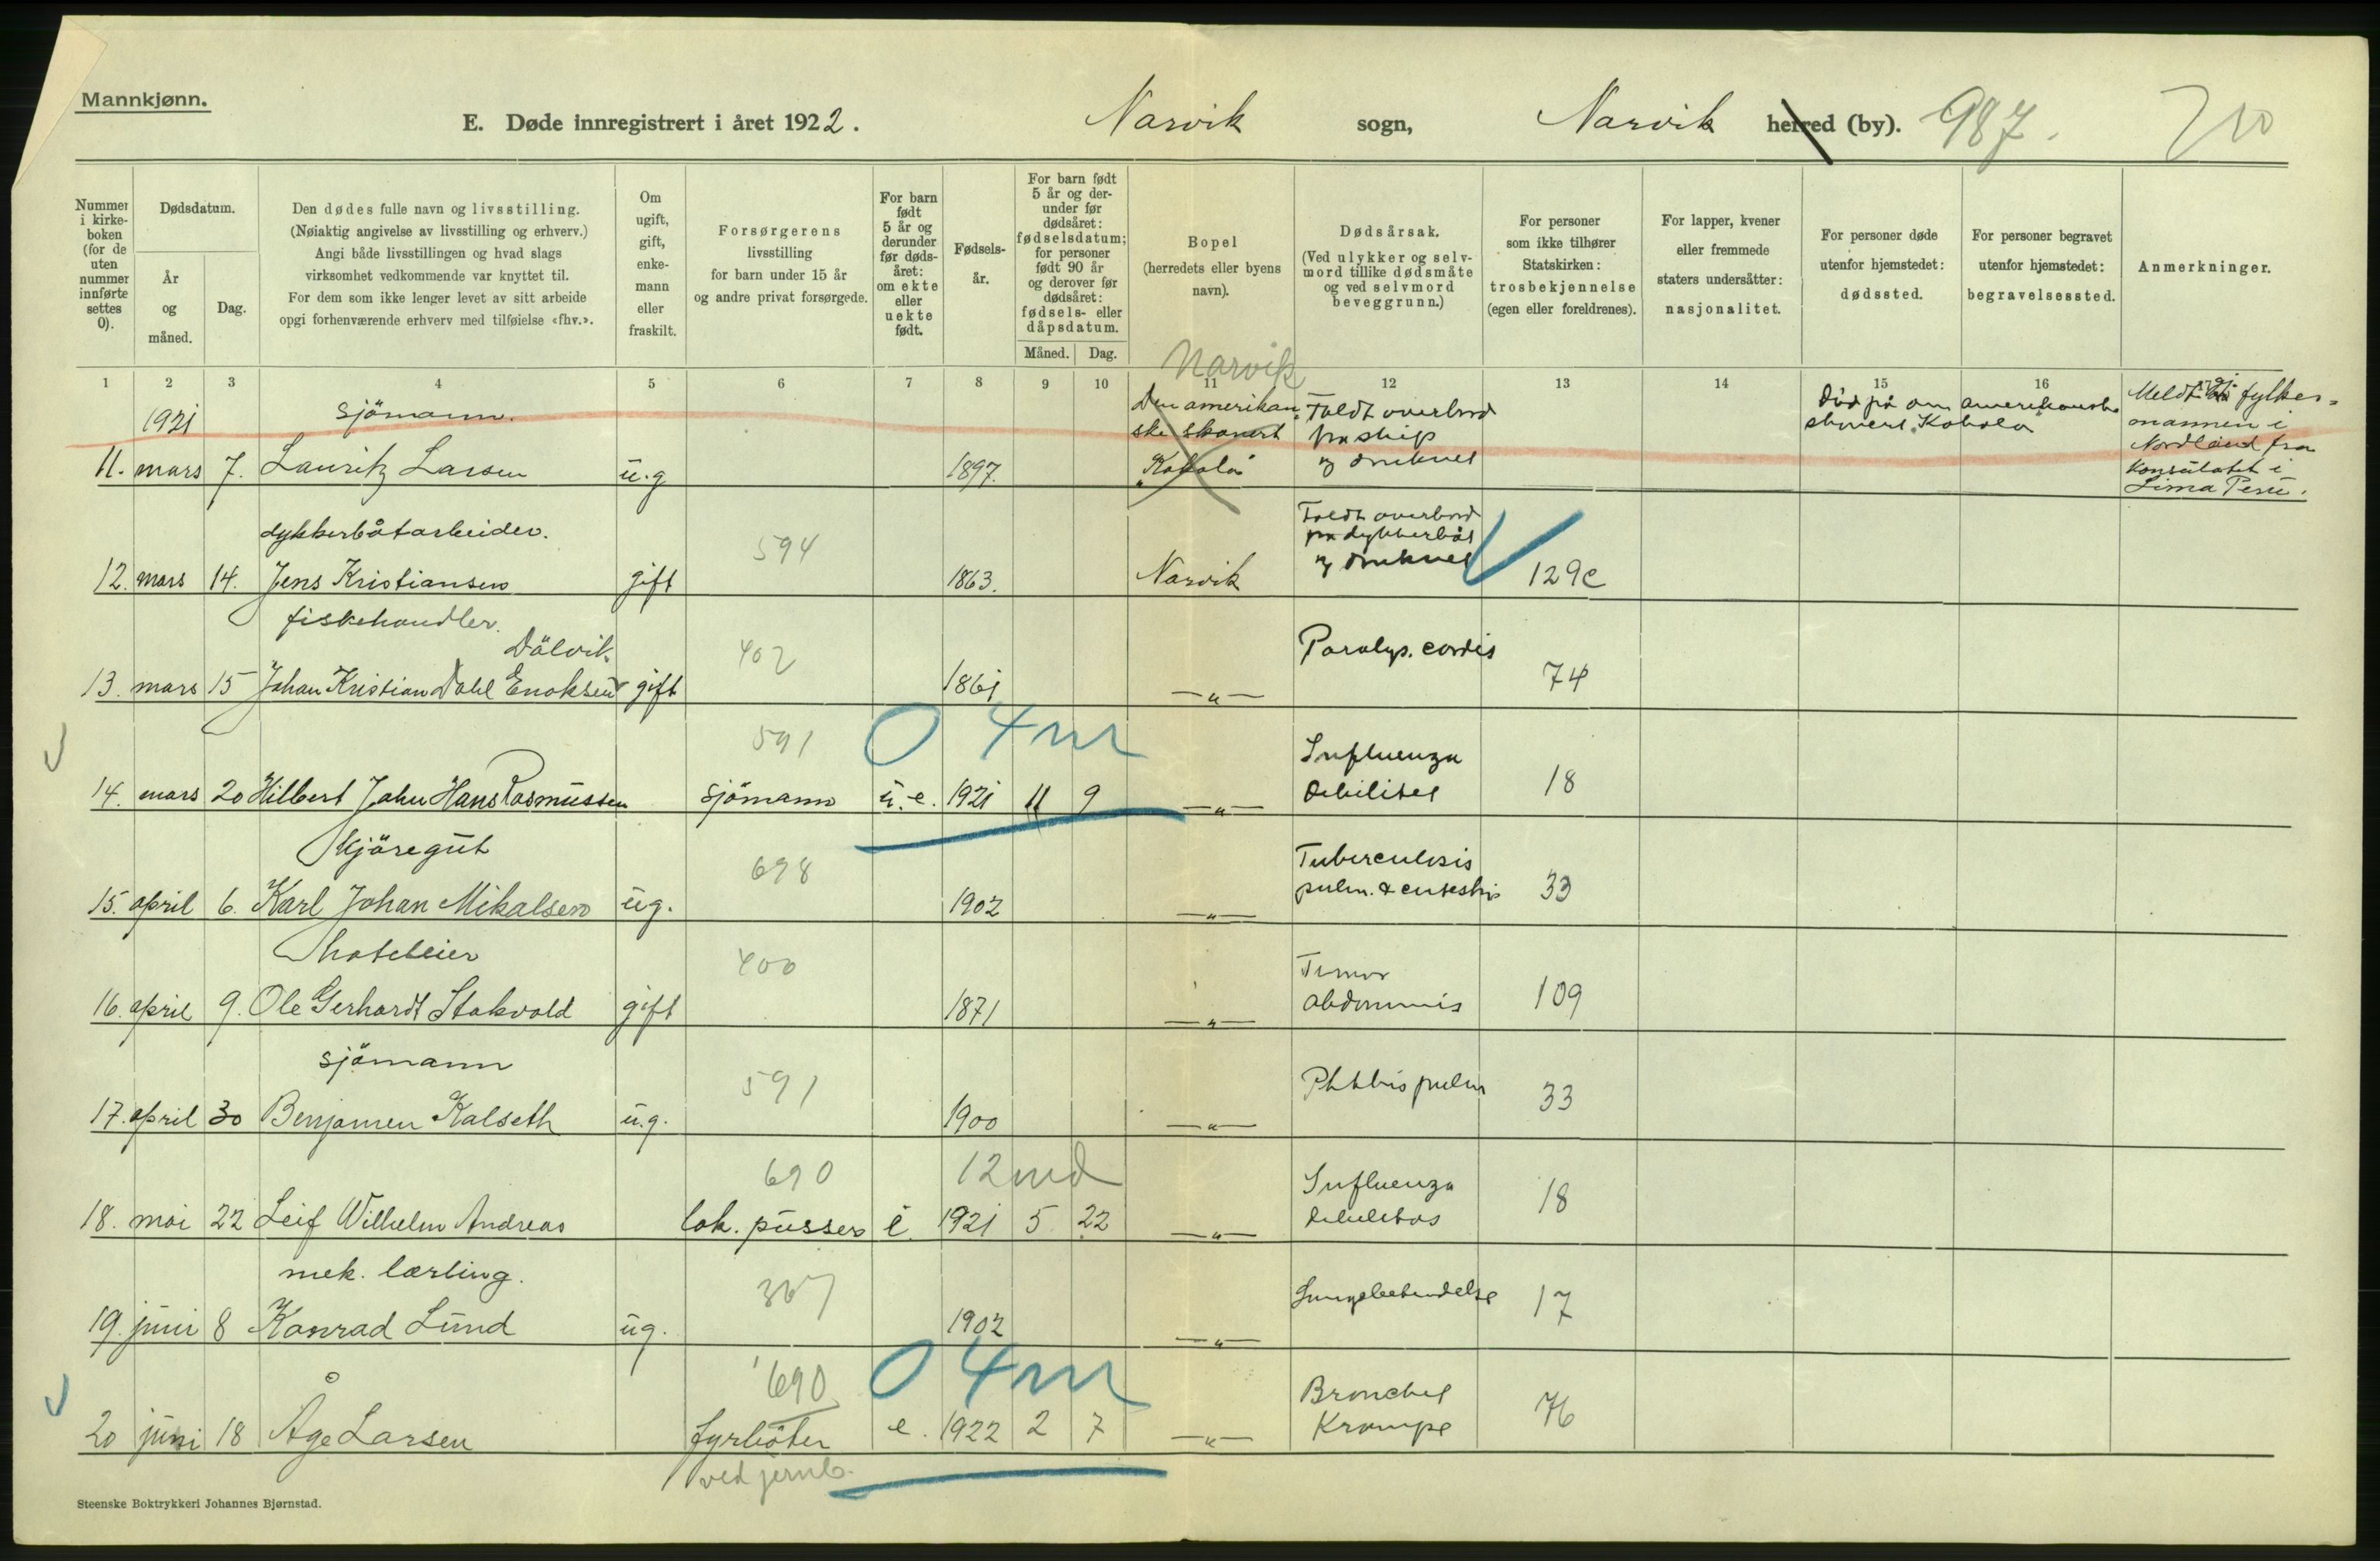 Mannkjønn.
E. Døde innregistrert i året 1922.
Narvik sogn, Narvik herred (by). 987.
Nummer i kirkeboken (for de uten nummer innførte settes 0).
Dødsdatum.
År og måned.
Dag.
Den dødes fulle navn og livsstilling.
(Nøiaktig angivelse av livsstilling og erhverv.)
Angi både livsstillingen og hvad slags
virksomhet vedkommende var knyttet til.
For dem som ikke lenger levet av sitt arbeide
opgi forhenværende erhverv med tilføielse «fhv.».
Om ugift, gift, enkemann eller fraskilt.
Forsørgerens
livsstilling
for barn under 15 år
og andre privat forsørgede.
For barn født 5 år og derunder før dødsåret: om ekte eller uekte født.
Fødselsår.
For barn født 5 år og derunder før dødsåret: fødselsdatum; for personer født 90 år og derover før dødsåret: fødsels- eller dåpsdatum.
Måned. Dag.
Bopel
(herredets eller byens navn).
Dødsårsak.
(Ved ulykker og selvmord tillike dødsmåte og ved selvmord beveggrunn.)
For personer som ikke tilhører Statskirken: trosbekjennelse (egen eller foreldrenes).
For lapper, kvener eller fremmede staters undersåtter: nasjonalitet.
For personer døde utenfor hjemstedet: dødssted.
For personer begravet utenfor hjemstedet: begravelsessted.
Anmerkninger.
1 2 3 4 5 6 7 8 9 10 11 12 13 14 15 16
Narvik
1921 sjömann. Den amerikanske skonert "Kohala" Faldt overbord fra skip og druknet Död på am amerikanske skonert "Kohala" Meldt fylkesmannen i Nordland fra Konsulatet i Lima Peru.
11. mars 7. Lauritz Larsen u.g 1897.
dykkerbåtarbeider. 594 Faldt overbord fra dykkerbåt og druknet
12. mars 14. Jens Kristiansen gift 1863. Narvik 129c
fiskehandler. Dälvik 402 Paralys. cordis
13. mars 15 Johan Kristian Dahl Enoksen gift 1861 —"— 74
591 0 4 m Influenza
14. mars 20 Hilbert John Hans Rasmussen sjömann u.e. 1921 11 9 —"— Debilitet 18
Kjöregut 698 Tuberculosis
15. april 6. Karl Johan Mikalsen ug. 1902 —"— pulm. & 33
hoteleier 400 Tumor
16. april 9. Ole Gerhardt Stokvold gift 1871 —"— abdominis 109
sjömann 591 Phthis pulm
17. april 30 Benjamen Kalseth u.g. 1900 —"— 33
690 12 md Influenza
18. mai 22 Leif Wilhelm Andreas lok. pusser e. 1921 5. 22 —"— 18
mek. lærling. 367 Lungebetendelse
19. juni 8 Konrad Lund ug. 1902 —"— 17
690 0 4 m Bronchit
20 juni 18 Åge Larsen fyrböter e. 1922 2 7 —"— Krampe 76
ved jernb.
Steenske Boktrykkeri Johannes Bjørnstad.